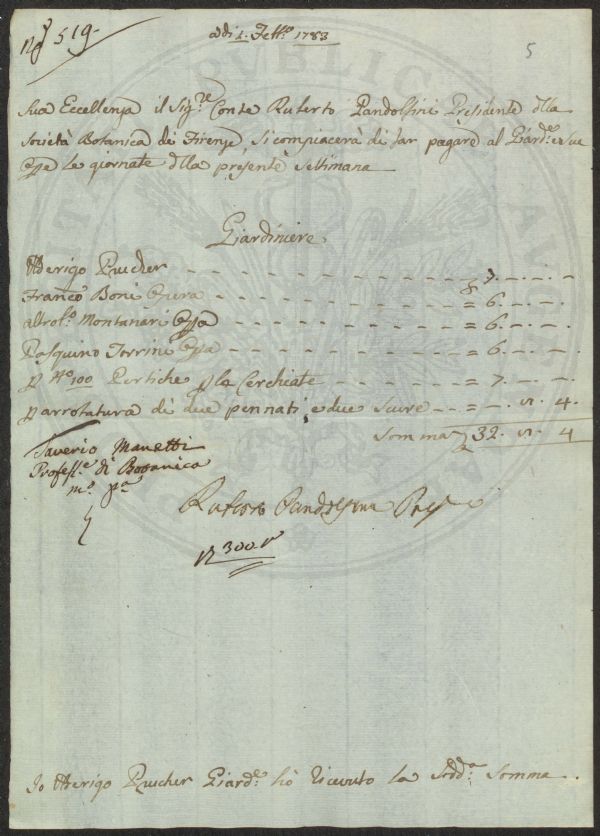 N.º 519.
adi 1. Febb.º 1783
5
Sua Eccellenza il Sig.re Conte Ruberto Pandolfini Presidente dlla
Società Botanica di Firenze, si compiacerà di far pagare al Giard.re e sue
Opre le giornate dlla presente settimana
Giardiniere
Alderigo Prucher - - - - - - - - - - = 7. - . -
Franco Boni Opera - - - - - - - - - - = 6. - . - .
Montanari Opa - - - - - - - - - = 6. - . - .
Pasquino Torrini Opa - - - - - - - - - = 6. - . - .
p N.º 100 Pertiche p le Cerchiate - - - - - - = 7. - . -
p arrotatura di due pennati, e due Scure - - = - . 4.
Somma 32. 4
Saverio Manetti
Profess.e di Botanica
m.º p.a
Ruberto Pandolfini Pres.e
300.
Io Alderigo Prucher Giard.e hò ricevuto la Sodd.a Somma.